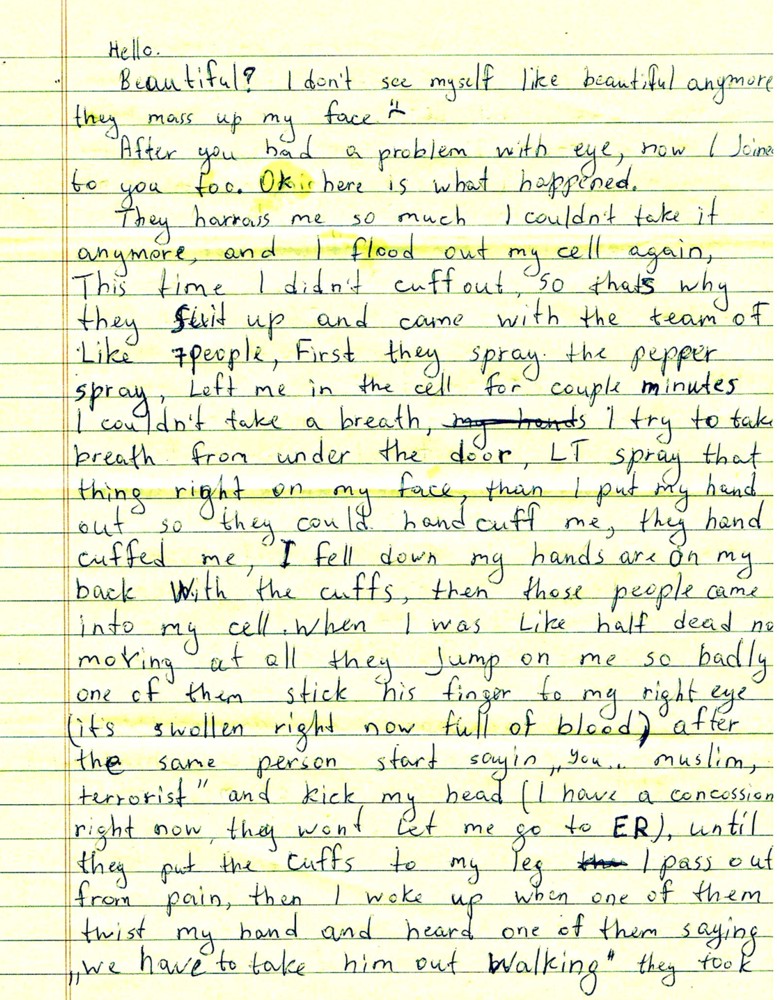 Hello.
Beautiful? I don't see myself like beautiful anymore
they mass up my face
After you had a problem with eye, now I Joined
to you too. Ok.. here is what happened.
They harrass me so much I couldn't take it
anymore, and I flood out my cell again,
This time I didn't cuff out, so thats why
they suit up and came with the team of
Like 7people, First they spray the pepper
spray, Left me in the cell for couple minutes
I couldn't take a breath, my hands I try to take
breath from under the door, LT spray that
thing right on my face, than I put my hand
out so they could handcuff me, they hand
cuffed me, I fell down my hands are on my
back With the cuffs, then those people came
into my cell. when I was Like half dead no
moving at all they Jump on me so badly
one of them stick his finger to my right eye
(it's swollen right now full of blood) after
the same person start sayin „you.. muslim,
terrorist" and kick my head (I have a concossion
right now, they wont Let me go to ER), until
they put the cuffs to my leg I pass out
from pain, then I woke up when one of them
twist my hand and heard one of them saying
„we have to take him out walking" they took